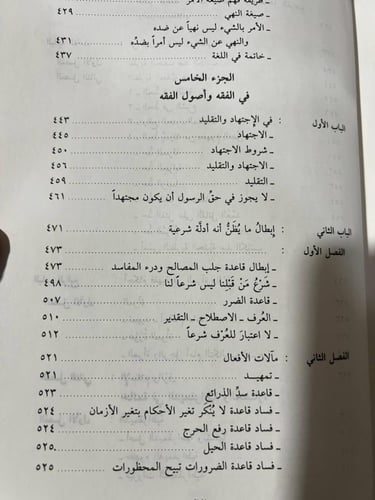 ـ صيغة النهي ٤٢٩
ـ الأمر بالشيء ليس نهياً عن ضده
والنهي عن الشيء ليس أمراً بضدّه ٤٣١
ـ خاتمة في اللغة ٤٣٧
الجزء الخامس
في الفقه وأصول الفقه
الباب الأول : في الإجتهاد والتقليد ٤٤٣
ـ الاجتهاد ٤٤٥
ـ شروط الاجتهاد ٤٥٠
ـ الاجتهاد والتقليد ٤٥٦
ـ التقليد ٤٥٩
ـ لا يجوز في حقِّ الرسول أن يكون مجتهداً ٤٦١
الباب الثاني : إبطالُ ما يُظَنُّ أنه أدلّة شرعية ٤٧١
الفصل الأول : ٤٧٣
ـ إبطال قاعدة جلب المصالح ودرء المفاسد ٤٧٣
ـ شَرْعُ مَنْ قَبْلِنا ليس شرعاً لنا ٤٩٨
ـ قاعدة الضرر ٥٠٧
ـ العُرف ـ الاصطلاح ـ التقدير ٥١٠
ـ لا اعتبارَ للعُرْف شرعاً ٥١٢
الفصل الثاني : مآلات الأفعال ٥٢١
ـ تمهيد ٥٢١
ـ قاعدة سدِّ الذرائع ٥٢٣
ـ فساد قاعدة لا يُنْكر تغير الأحكام بتغير الأزمان ٥٢٤
ـ فساد قاعدة رفع الحرج ٥٢٤
ـ فساد قاعدة الحيل ٥٢٥
ـ فساد قاعدة الضرورات تبيح المحظورات ٥٢٥